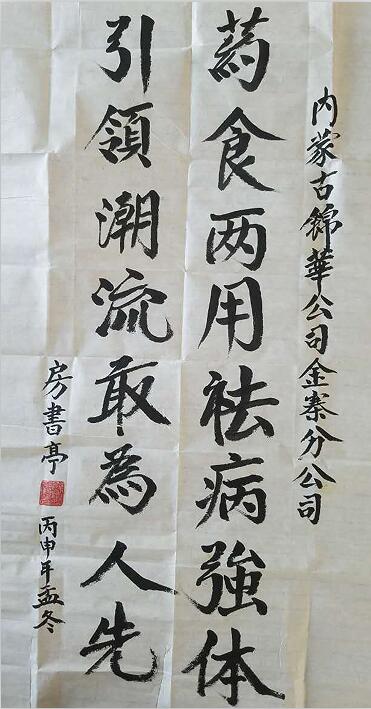 内蒙古锦華公司金寨分公司
药食两用祛病強体
引領潮流敢為人先
房書亭
丙申年孟冬